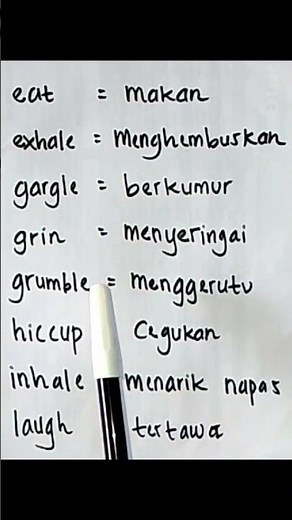 eat = makan
exhale = menghembuskan
gargle = berkumur
grin = menyeringai
grumble = menggerutu
hiccup cegukan
inhale menarik napas
laugh tertawa